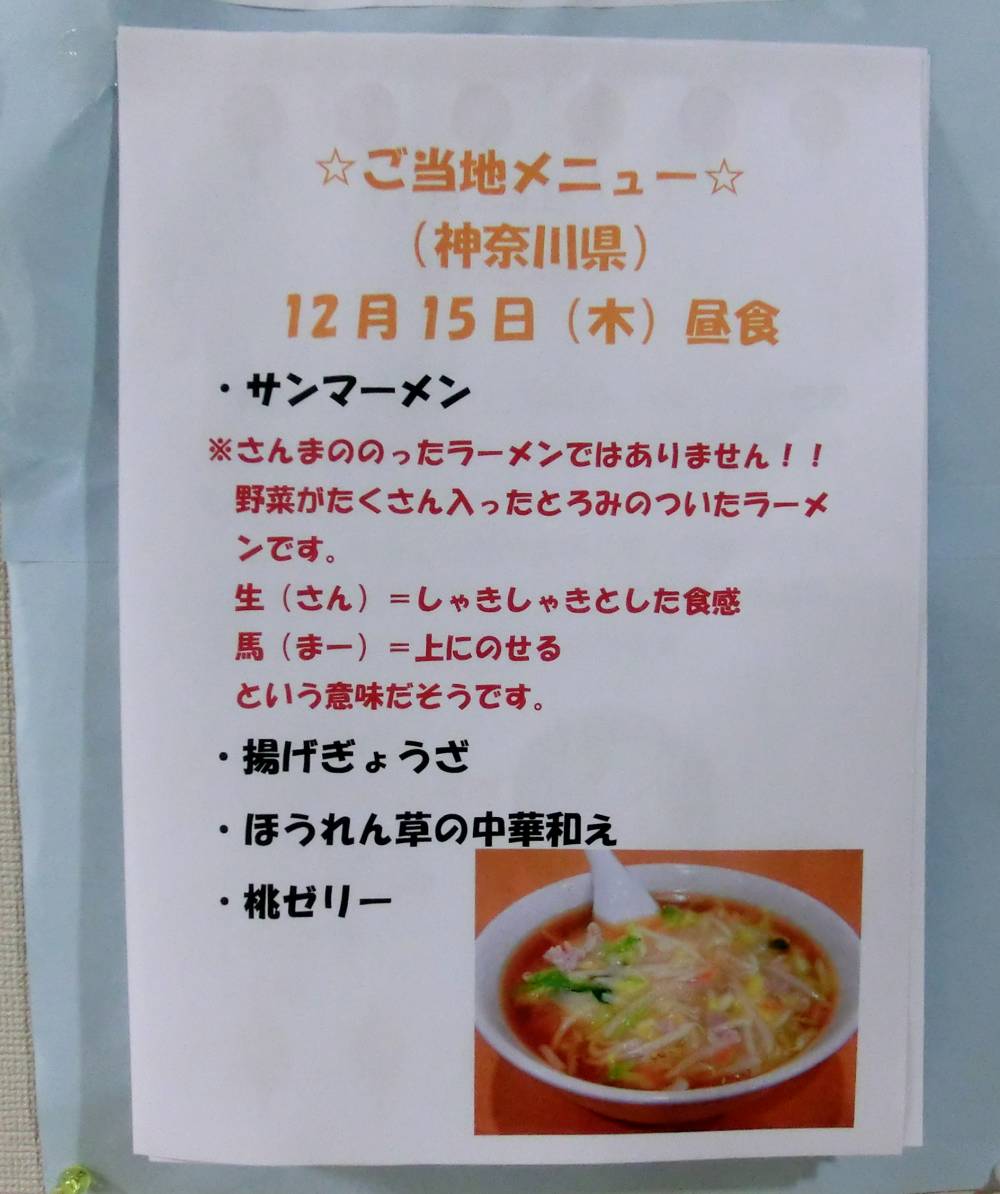 ☆ご当地メニュー☆
（神奈川県）
12月15日（木）昼食
・サンマーメン
※さんまののったラーメンではありません！！
野菜がたくさん入ったとろみのついたラーメ
ンです。
生（さん）＝しゃきしゃきとした食感
馬（まー）＝上にのせる
という意味だそうです。
・揚げぎょうざ
・ほうれん草の中華和え
・桃ゼリー